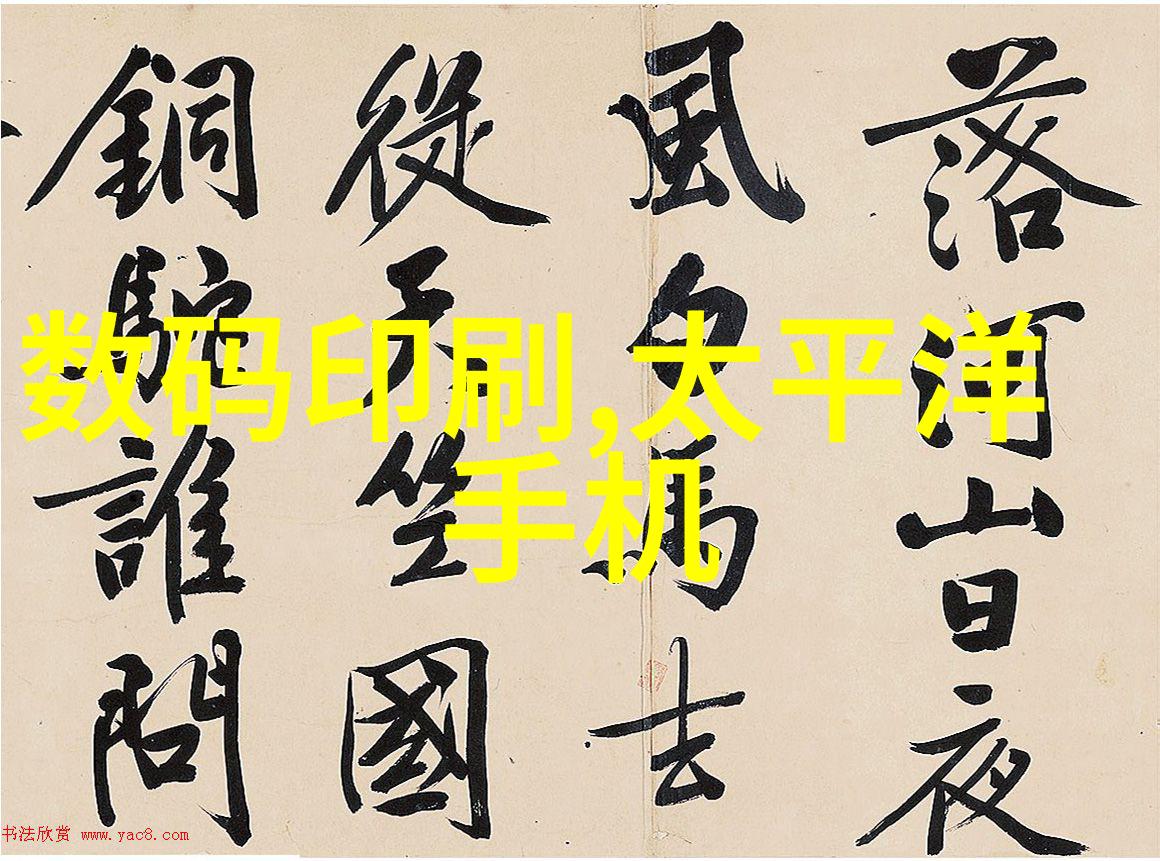 落河山日夜
風白馬去
從天竺國
銅駝誰問
数码印刷,太平洋
手机
书法欣赏 www.yac8.com